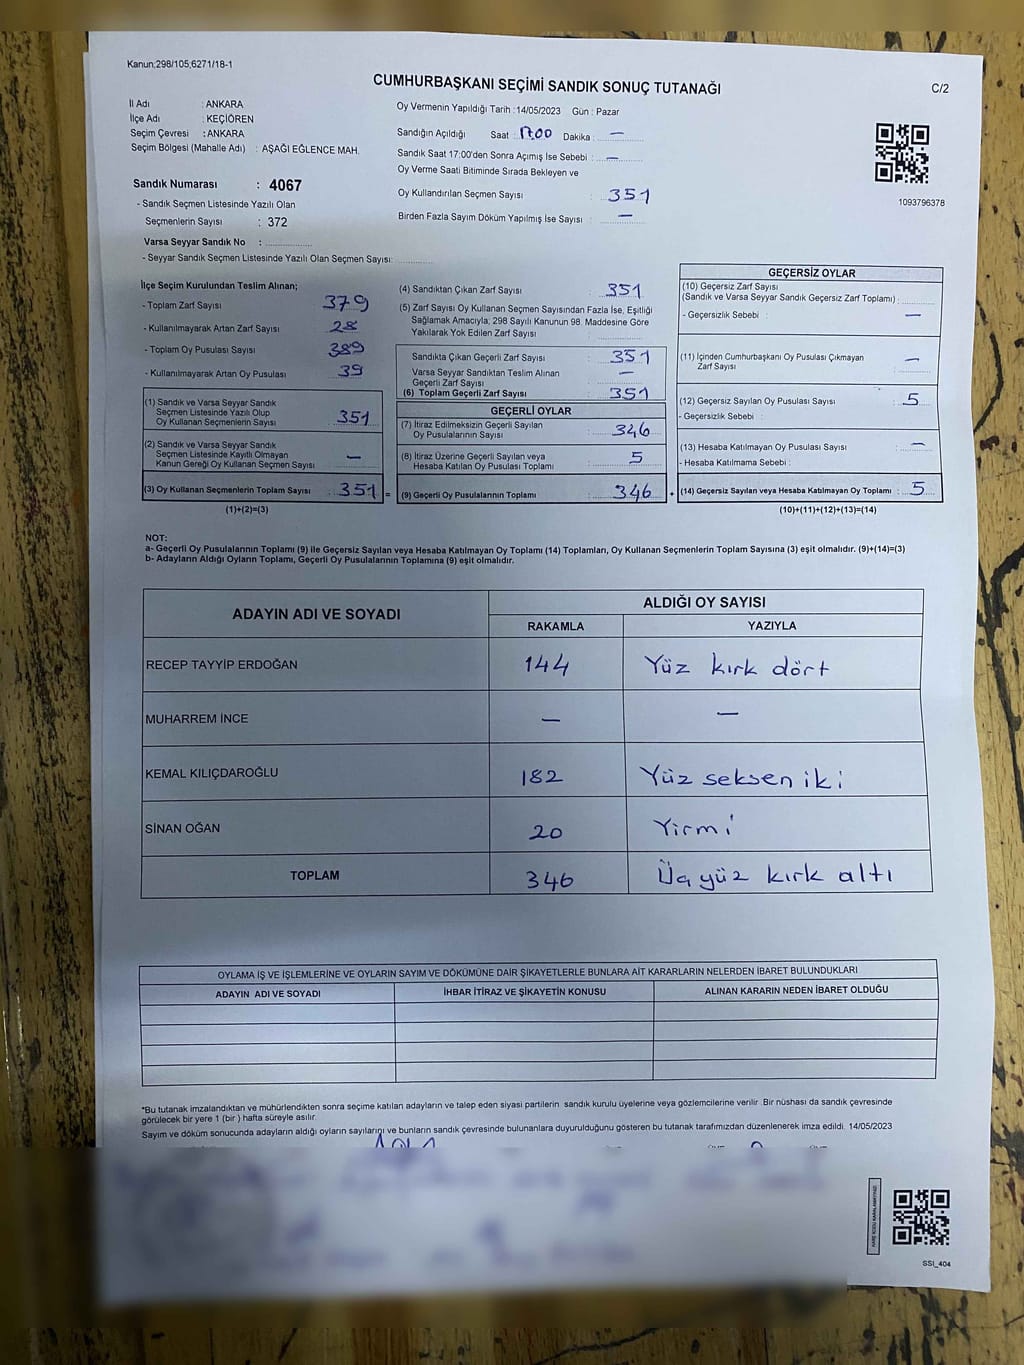 Kanun;298/105,6271/18-1
CUMHURBAŞKANI SEÇİMİ SANDIK SONUÇ TUTANAĞI
C/2
İl Adı : ANKARA
İlçe Adı : KEÇİÖREN
Seçim Çevresi : ANKARA
Seçim Bölgesi (Mahalle Adı) : AŞAĞI EĞLENCE MAH.
Sandık Numarası : 4067
- Sandık Seçmen Listesinde Yazılı Olan
Seçmenlerin Sayısı : 372
Varsa Seyyar Sandık No :
- Seyyar Sandık Seçmen Listesinde Yazılı Olan Seçmen Sayısı:
Oy Vermenin Yapıldığı Tarih : 14/05/2023 Gün : Pazar
Sandığın Açıldığı Saat : 17.00 Dakika : —
Sandık Saat 17:00'den Sonra Açımış İse Sebebi : —
Oy Verme Saati Bitiminde Sırada Bekleyen ve
Oy Kullandırılan Seçmen Sayısı : 351
Birden Fazla Sayım Döküm Yapılmış İse Sayısı : —
1093796378
İlçe Seçim Kurulundan Teslim Alınan;
- Toplam Zarf Sayısı 379
- Kullanılmayarak Artan Zarf Sayısı 28
- Toplam Oy Pusulası Sayısı 389
- Kullanılmayarak Artan Oy Pusulası 39
(1) Sandık ve Varsa Seyyar Sandık
Seçmen Listesinde Yazılı Olup
Oy Kullanan Seçmenlerin Sayısı : 351
(2) Sandık ve Varsa Seyyar Sandık
Seçmen Listesinde Kayıtlı Olmayan
Kanun Gereği Oy Kullanan Seçmen Sayısı : —
(3) Oy Kullanan Seçmenlerin Toplam Sayısı : 351 =
(1)+(2)=(3)
(4) Sandıktan Çıkan Zarf Sayısı : 351
(5) Zarf Sayısı Oy Kullanan Seçmen Sayısından Fazla İse, Eşitliği
Sağlamak Amacıyla, 298 Sayılı Kanunun 98. Maddesine Göre
Yakılarak Yok Edilen Zarf Sayısı :
Sandıkta Çıkan Geçerli Zarf Sayısı : 351
Varsa Seyyar Sandıktan Teslim Alınan
Geçerli Zarf Sayısı : —
(6) Toplam Geçerli Zarf Sayısı : 351
GEÇERLİ OYLAR
(7) İtiraz Edilmeksizin Geçerli Sayılan
Oy Pusulalarının Sayısı : 346
(8) İtiraz Üzerine Geçerli Sayılan veya
Hesaba Katılan Oy Pusulası Toplamı : 5
(9) Geçerli Oy Pusulalarının Toplamı : 346 +
GEÇERSİZ OYLAR
(10) Geçersiz Zarf Sayısı
(Sandık ve Varsa Seyyar Sandık Geçersiz Zarf Toplamı) :
- Geçersizlik Sebebi : —
(11) İçinden Cumhurbaşkanı Oy Pusulası Çıkmayan
Zarf Sayısı : —
(12) Geçersiz Sayılan Oy Pusulası Sayısı : 5
- Geçersizlik Sebebi :
(13) Hesaba Katılmayan Oy Pusulası Sayısı : —
- Hesaba Katılmama Sebebi :
(14) Geçersiz Sayılan veya Hesaba Katılmayan Oy Toplamı : 5
(10)+(11)+(12)+(13)=(14)
NOT:
a- Geçerli Oy Pusulalarının Toplamı (9) ile Geçersiz Sayılan veya Hesaba Katılmayan Oy Toplamı (14) Toplamları, Oy Kullanan Seçmenlerin Toplam Sayısına (3) eşit olmalıdır. (9)+(14)=(3)
b- Adayların Aldığı Oyların Toplamı, Geçerli Oy Pusulalarının Toplamına (9) eşit olmalıdır.
ADAYIN ADI VE SOYADI
ALDIĞI OY SAYISI
RAKAMLA YAZIYLA
RECEP TAYYİP ERDOĞAN 144 Yüz kırk dört
MUHARREM İNCE — —
KEMAL KILIÇDAROĞLU 182 Yüz seksen iki
SİNAN OĞAN 20 Yirmi
TOPLAM 346 Üç yüz kırk altı
OYLAMA İŞ VE İŞLEMLERİNE VE OYLARIN SAYIM VE DÖKÜMÜNE DAİR ŞİKAYETLERLE BUNLARA AİT KARARLARIN NELERDEN İBARET BULUNDUKLARI
ADAYIN ADI VE SOYADI İHBAR İTİRAZ VE ŞİKAYETİN KONUSU ALINAN KARARIN NEDEN İBARET OLDUĞU
*Bu tutanak imzalandıktan ve mühürlendikten sonra seçime katılan adayların ve talep eden siyasi partilerin sandık kurulu üyelerine veya gözlemcilerine verilir. Bir nüshası da sandık çevresinde
görülecek bir yere 1 (bir ) hafta süreyle asılır.
Sayım ve döküm sonucunda adayların aldığı oyların sayılarını ve bunların sandık çevresinde bulunanlara duyurulduğunu gösteren bu tutanak tarafımızdan düzenlenerek imza edildi. 14/05/2023
SSI_404